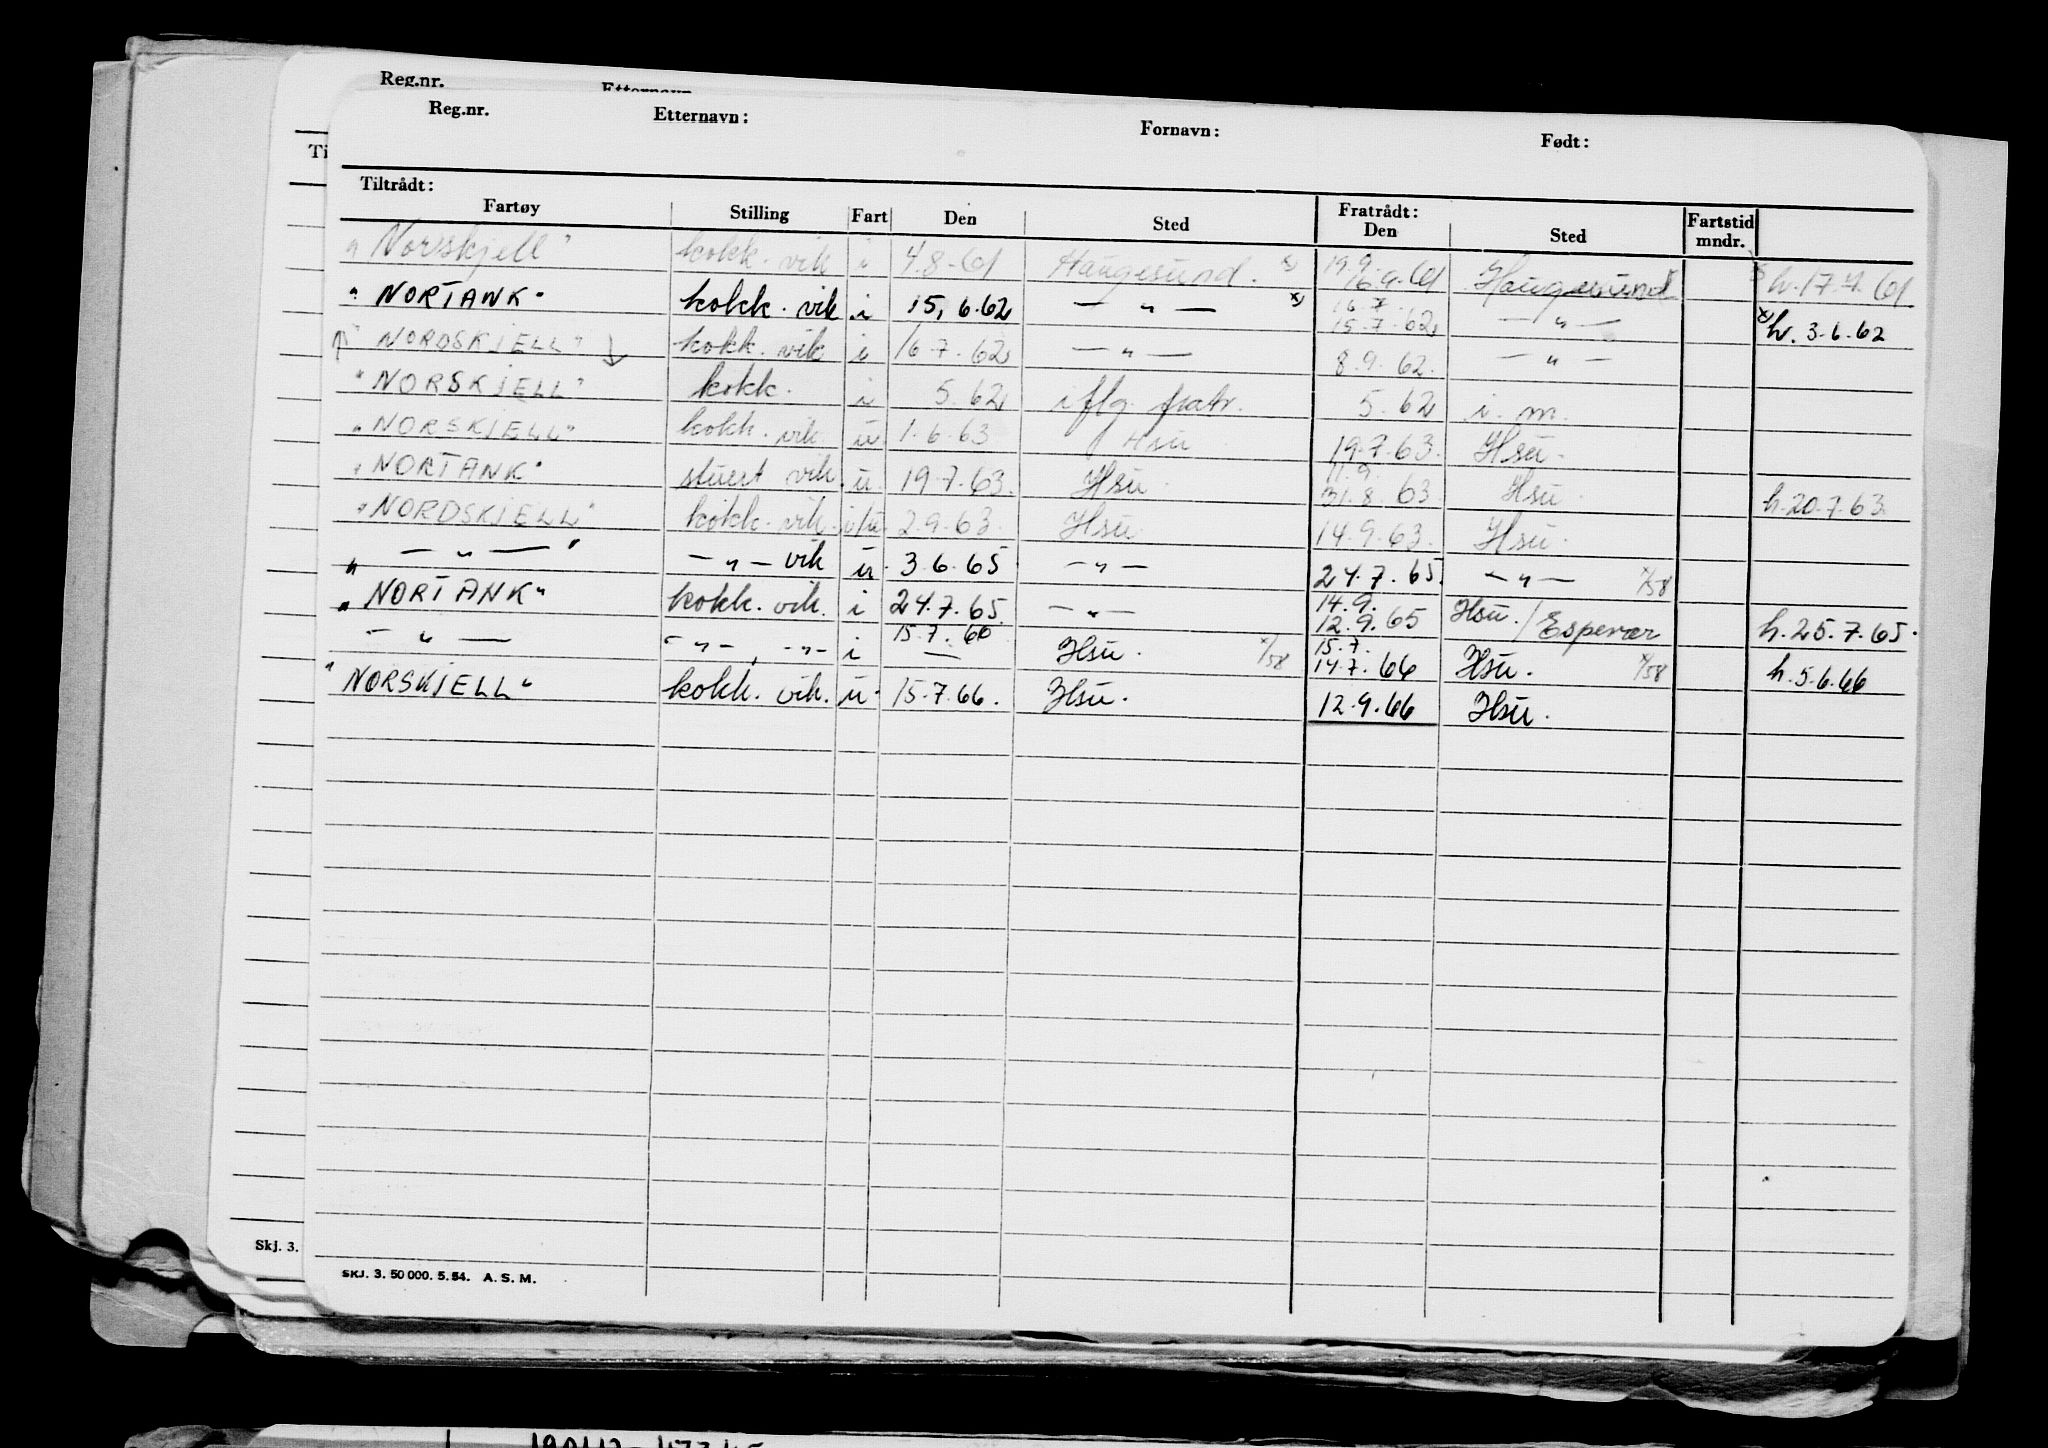 Reg.nr.
Reg.nr. Etternavn: Fornavn: Født:
Tiltrådt: Fratrådt:
Fartøy Stilling Fart Den Sted Den Sted Fartstid mndr.
"Norskjell" kokk. vik i 4.8-61 Haugesund. x) 19.9. 16.9.61 Haugesund x h. 17.7.61
"NORTANK" kokk. vik i 15, 6.62 — " — x) 16.7. 15.7.62 — " — x) h. 3.6.62
" NORDSKJELL" ↓ kokk. vik i 16.7.62 — " — 8.9.62. — " —
"NORSKJELL" kokk. i 5.62 iflg. fratr. 5.62 i. m.
"NORSKJELL" kokk. vik u. 1.6.63 Hsu 19.7.63. Hsu.
"NORTANK" stuert vik. u. 19.7.63. Hsu. 11.9. 31.8.63. Hsu. h. 20.7.63.
"NORDSKJELL" kokk. vik. 2.9.63. Hsu 14.9.63. Hsu.
" — " — " — " — vik u. 3.6.65 — " — 24.7.65. — " — x/58
"NORTANK" kokk. vik. i 24.7.65. — " — 14.9. 12.9.65 Hsu. / Espevær h. 25.7.65.
— " — — " —, — " — i 15.7.66 — Hsu. x/58 15.7. 14.7.66 Hsu. x/58 h. 5.6.66
"NORSKJELL" kokk. vik. u. 15.7.66. Hsu. 12.9.66 Hsu.
Skj. 3.
SKJ. 3. 50 000. 5. 54. A. S. M.